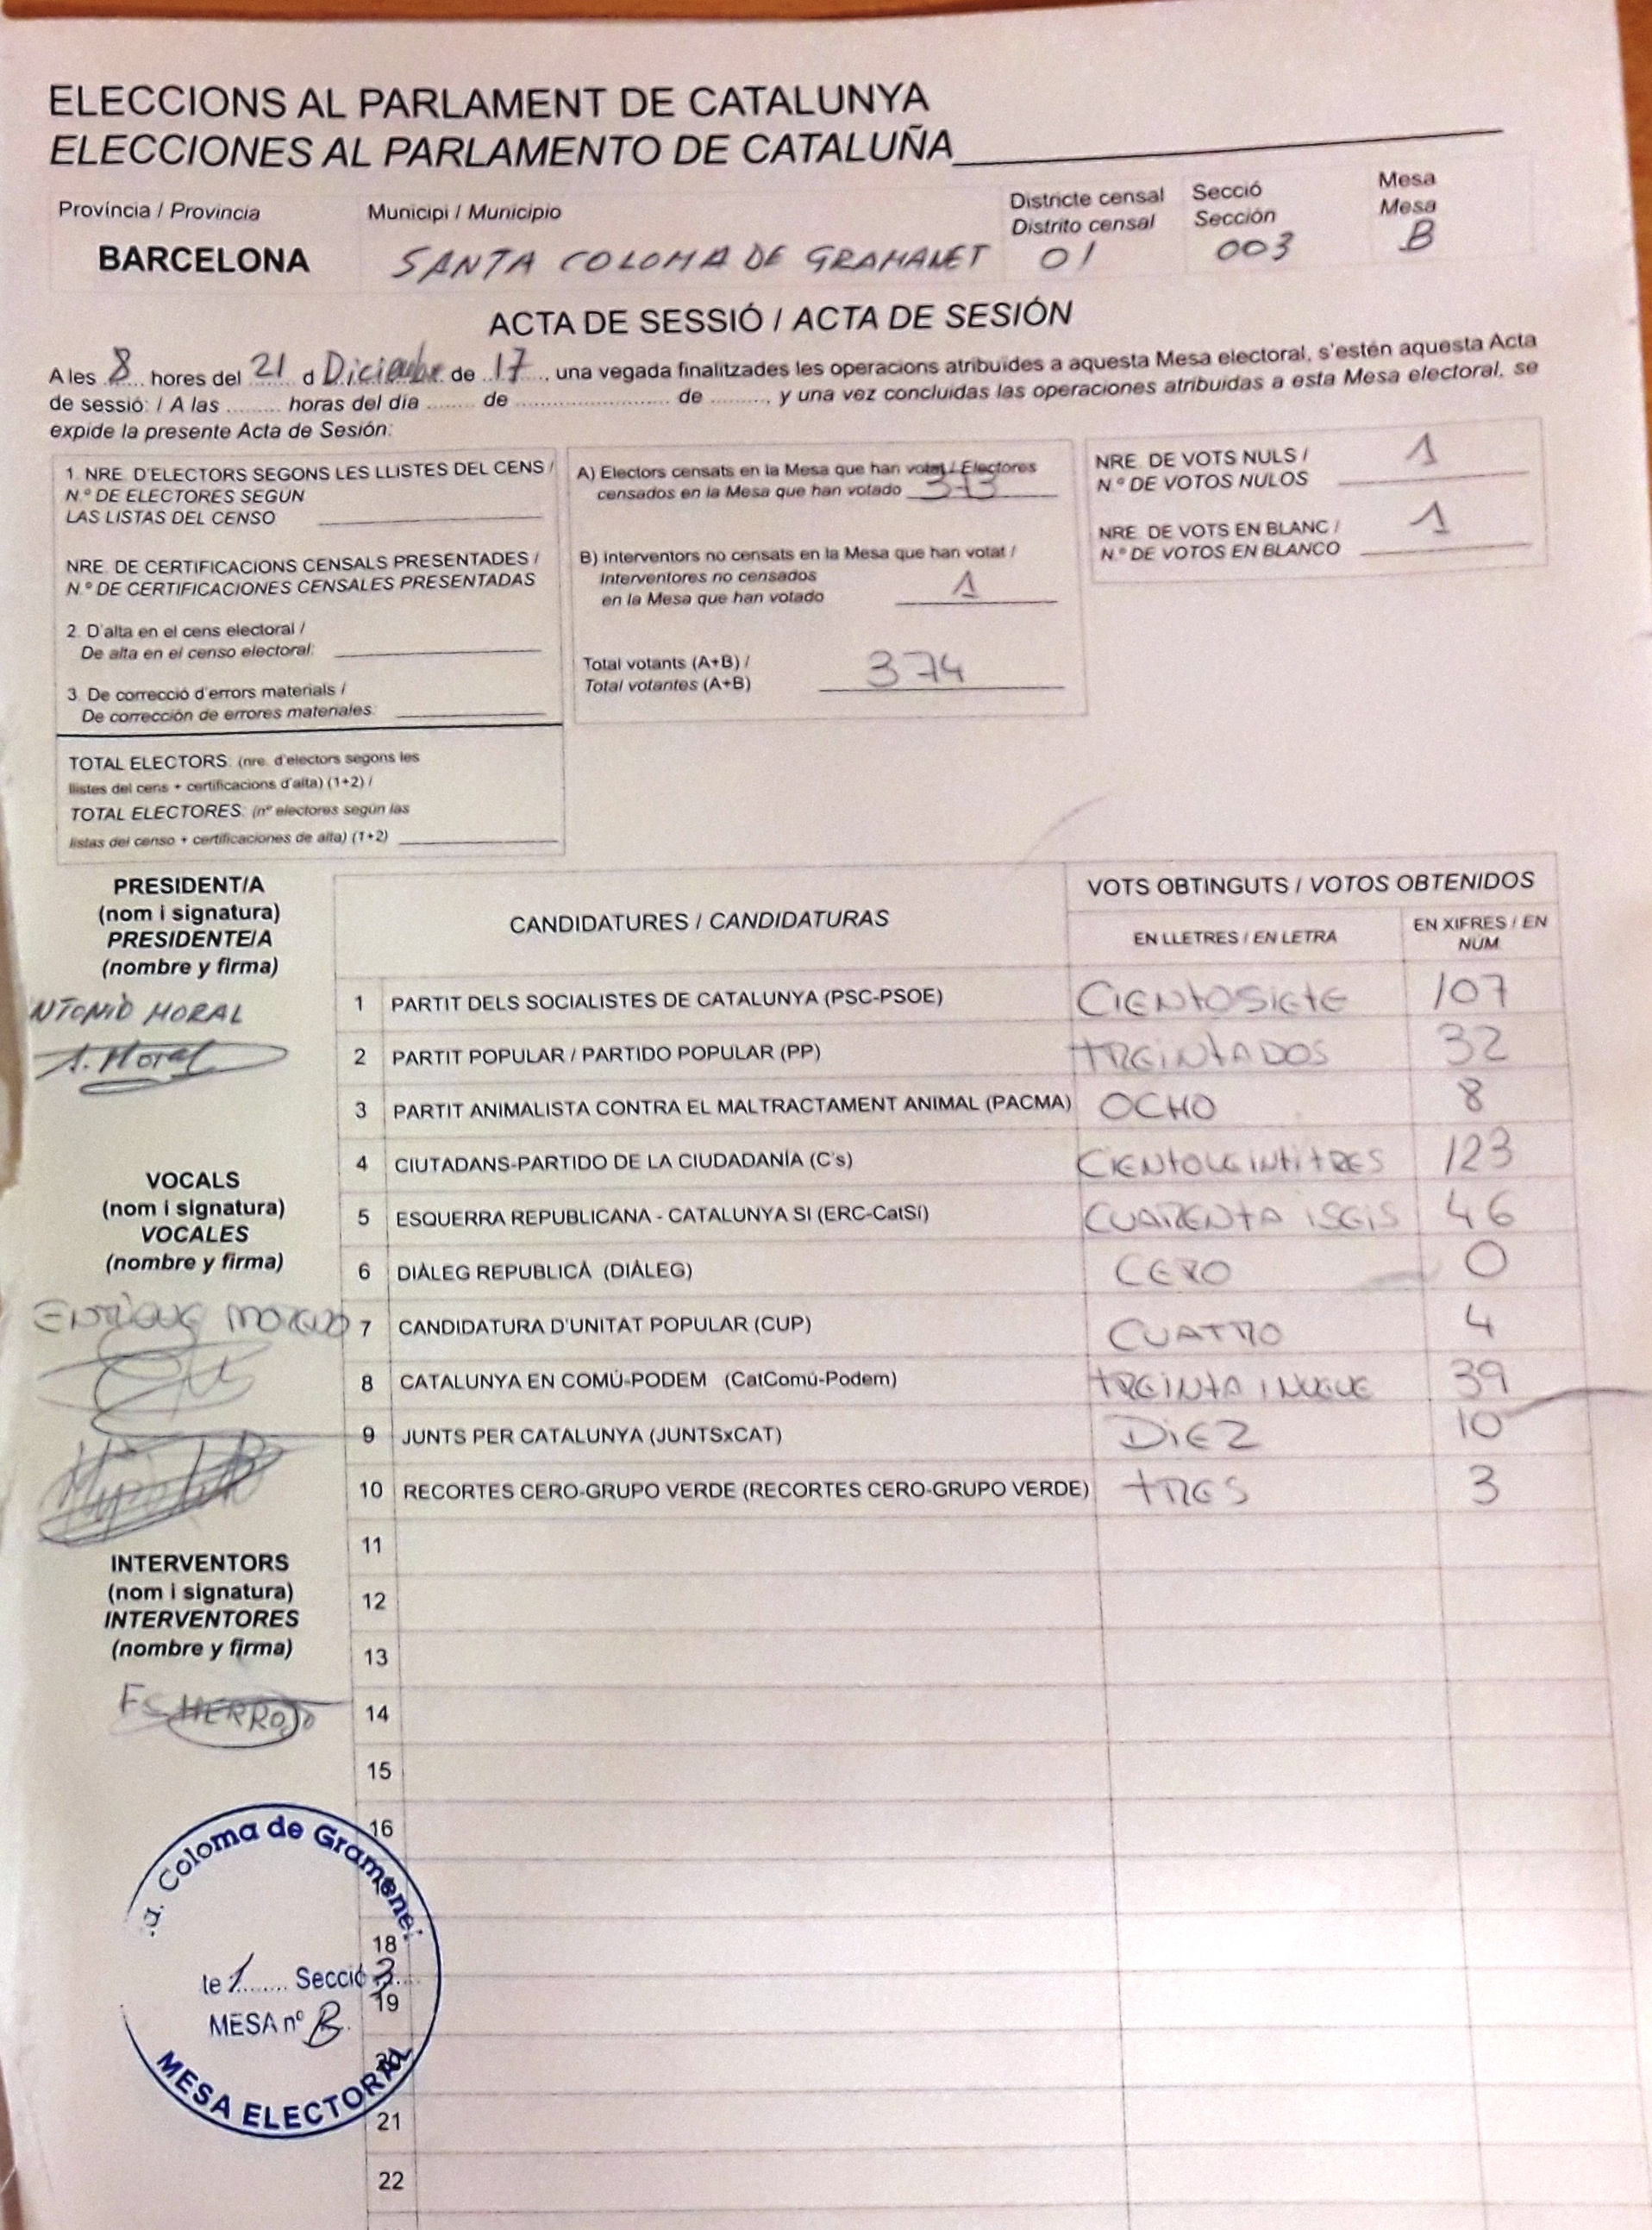 ELECCIONS AL PARLAMENT DE CATALUNYA
ELECCIONES AL PARLAMENTO DE CATALUÑA
Província / Provincia
BARCELONA
Municipi / Municipio
SANTA COLOMA DE GRAMANET
Districte censal
Distrito censal
01
Secció
Sección
003
Mesa
Mesa
B
ACTA DE SESSIÓ / ACTA DE SESIÓN
A les 8 hores del 21 d Diciembre de 17, una vegada finalitzades les operacions atribuïdes a aquesta Mesa electoral, s'estén aquesta Acta
de sessió: / A las ........ horas del día ....... de ....................... de ........, y una vez concluidas las operaciones atribuidas a esta Mesa electoral, se
expide la presente Acta de Sesión:
1. NRE. D'ELECTORS SEGONS LES LLISTES DEL CENS /
N.º DE ELECTORES SEGÚN
LAS LISTAS DEL CENSO
NRE. DE CERTIFICACIONS CENSALS PRESENTADES /
N.º DE CERTIFICACIONES CENSALES PRESENTADAS
2. D'alta en el cens electoral /
De alta en el censo electoral:
3. De correcció d'errors materials /
De corrección de errores materiales:
TOTAL ELECTORS: (nre. d'electors segons les
llistes del cens + certificacions d'alta) (1+2) /
TOTAL ELECTORES: (nº electores según las
listas del censo + certificaciones de alta) (1+2)
A) Electors censats en la Mesa que han votat / Electores
censados en la Mesa que han votado 373
B) Interventors no censats en la Mesa que han votat /
Interventores no censados
en la Mesa que han votado 1
Total votants (A+B) /
Total votantes (A+B) 374
NRE. DE VOTS NULS /
N.º DE VOTOS NULOS 1
NRE. DE VOTS EN BLANC /
N.º DE VOTOS EN BLANCO 1
PRESIDENT/A
(nom i signatura)
PRESIDENTE/A
(nombre y firma)
NTONIO MORAL
A. Moral
VOCALS
(nom i signatura)
VOCALES
(nombre y firma)
ENRIQUE MORENO
INTERVENTORS
(nom i signatura)
INTERVENTORES
(nombre y firma)
CANDIDATURES / CANDIDATURAS
VOTS OBTINGUTS / VOTOS OBTENIDOS
EN LLETRES / EN LETRA
EN XIFRES / EN
NÚM.
1 PARTIT DELS SOCIALISTES DE CATALUNYA (PSC-PSOE) CIENTOSIETE 107
2 PARTIT POPULAR / PARTIDO POPULAR (PP) TREINTADOS 32
3 PARTIT ANIMALISTA CONTRA EL MALTRACTAMENT ANIMAL (PACMA) OCHO 8
4 CIUTADANS-PARTIDO DE LA CIUDADANÍA (C's) CIENTOVEINTITRES 123
5 ESQUERRA REPUBLICANA - CATALUNYA SÍ (ERC-CatSí) CUARENTA ISEIS 46
6 DIÀLEG REPUBLICÀ (DIÀLEG) CERO 0
7 CANDIDATURA D'UNITAT POPULAR (CUP) CUATRO 4
8 CATALUNYA EN COMÚ-PODEM (CatComú-Podem) TREINTA INUEVE 39
9 JUNTS PER CATALUNYA (JUNTSxCAT) DIEZ 10
10 RECORTES CERO-GRUPO VERDE (RECORTES CERO-GRUPO VERDE) TRES 3
11
12
13
14
15
16
18
19
20
21
22
.a. Coloma de Gramene
te 1 Secció 3
MESA nº B
MESA ELECTORAL